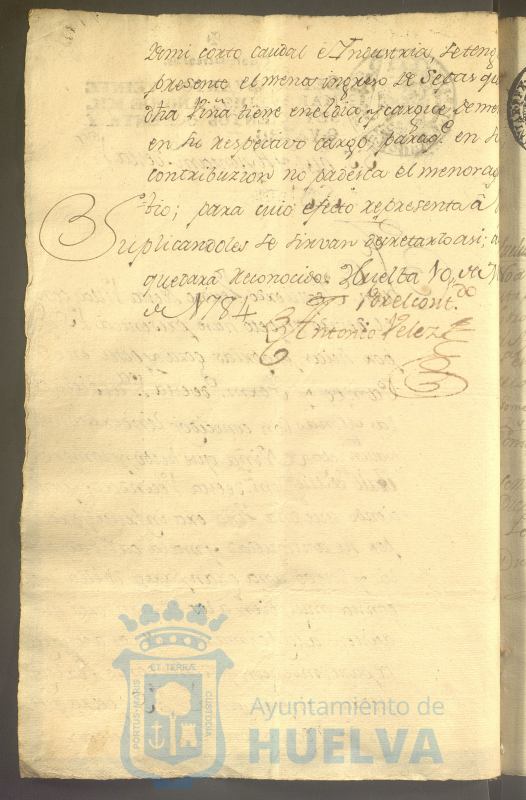 De mi corto caudal é Industria, se teng
presente el menos ingreso de Setas qu
dha Viña tiene en el dia, y cargue de me
en su respectivo cargo, paraq.e en 
contribuzion no padesca el menor a
bio; para cuio efecto representa â
Suplicandoles se sirvan decretarlo asi; 
quedara reconocido. Huelva 10, de
de 1784
Por el cont.do
Antonio Velez
PORTUS MARIS ET TERRÆ CUSTODIA
Ayuntamiento de
HUELVA